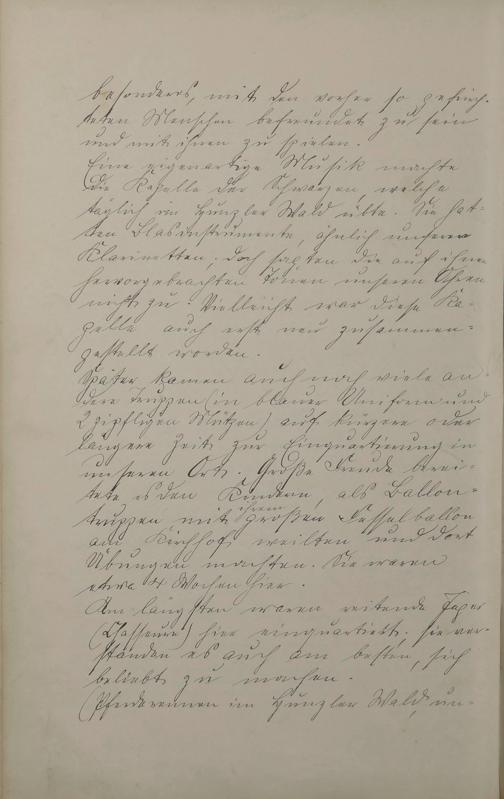 besonders, mit den vorher so gefürch-
teten Menschen befreundet zu sein
und mit ihnen zu spielen.
Eine eigenartige Musik machte
die Kapelle der Schwarzen, welche
täglich im Hunzler Wald übte. Sie hat-
ten Blasinstrumente, ähnlich unseren
Klarinetten; doch sagten die auf ihnen
hervorgebrachten Tönen unseren Ohren
nicht zu. Vielleicht war diese Ka-
pelle auch erst neu zusammen-
gestellt worden.
Später kamen auch noch viele an-
dere Truppen (in blauer Uniform und
2 zipfligen Mützen) auf kürzere oder
längere Zeit zur Einquartierung in
unseren Ort. Große Freude berei-
tete es den Kindern, als Ballon-
truppen mit ihrem großen Fesselballon
am Kirchhof weilten und dort
Übungen machten. Sie waren
etwa 4 Wochen hier.
Am längsten waren reitende Jäger
(Chasseure) hier einquartiert. Sie ver-
standen es auch am besten, sich
beliebt zu machen.
Pferderennen im Hunzler Wald, un-